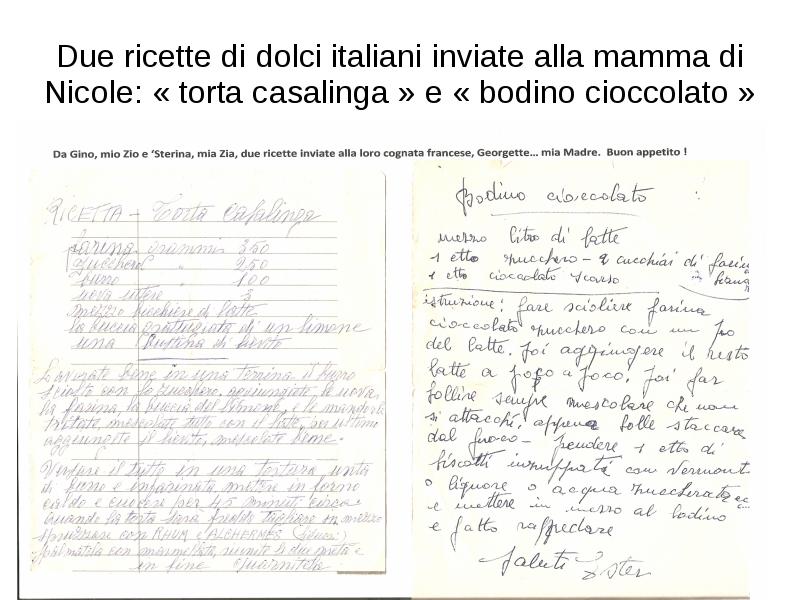 Due ricette di dolci italiani inviate alla mamma di
Nicole: « torta casalinga » e « bodino cioccolato »
Da Gino, mio Zio e ‘Sterina, mia Zia, due ricette inviate alla loro cognata francese, Georgette... mia Madre. Buon appetito !
RICETTA - Torta Casalinga
farina grammi 350
zucchero " 250
burro " 100
uova intere 3
mezzo bicchiere di latte
la buccia grattugiata di un limone
una bustina di lievito
Lavorate bene in una terrina il burro
sciolto con lo zucchero, aggiungiete le uova,
la farina, la buccia del limone, e le mandorle
tritate, mescolate tutto con il latte, per ultimo
aggiungete il lievito, mescolate bene.
Versare il tutto in una tortiera unta
di burro e infarinata mettere in forno
caldo e cuocere per 45 minuti circa
quando la torta sarà fredda tagliare in mezzo
spruzzare con RHUM e ALCHERMES
spalmatela con marmellata, riunite le due metà e
in fine guarnitela
Bodino cioccolato :
mezzo litro di latte
1 etto zucchero - 2 cucchiai di farina
1 etto cioccolato scarso bianca
istruzione: fare sciogliere farina
cioccolato zucchero con un po
del latte. Poi aggiungere il resto
latte a poco a poco. Poi far
bollire sempre mescolare che non
si attacchi, appena bolle staccare
dal fuoco - prendere 1 etto di
biscotti inzuppati con vermout
o liquore o acqua zuccherata ecc
e mettere in mezzo al bodino
e fatto raffredare
Saluti Ester